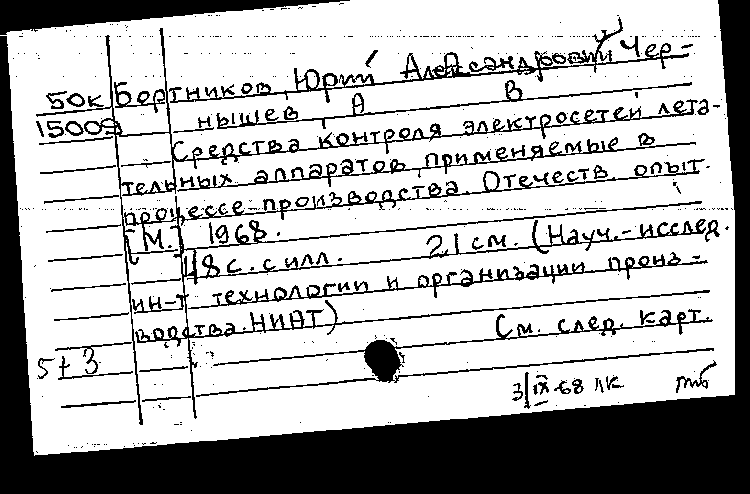 50к Бортников, Юрий Александрович Чер-
15009 нышев А В
Средства контроля электросетей лета-
тельных аппаратов, применяемые в
процессе производства. Отечеств. опыт.
[М.] 1968.
48 с. с илл. 21 см. (Науч.-исслед.
ин-т технологии и организации произ-
водства. НИАТ)
См. след. карт.
5+3
3/IX-68 ЛК